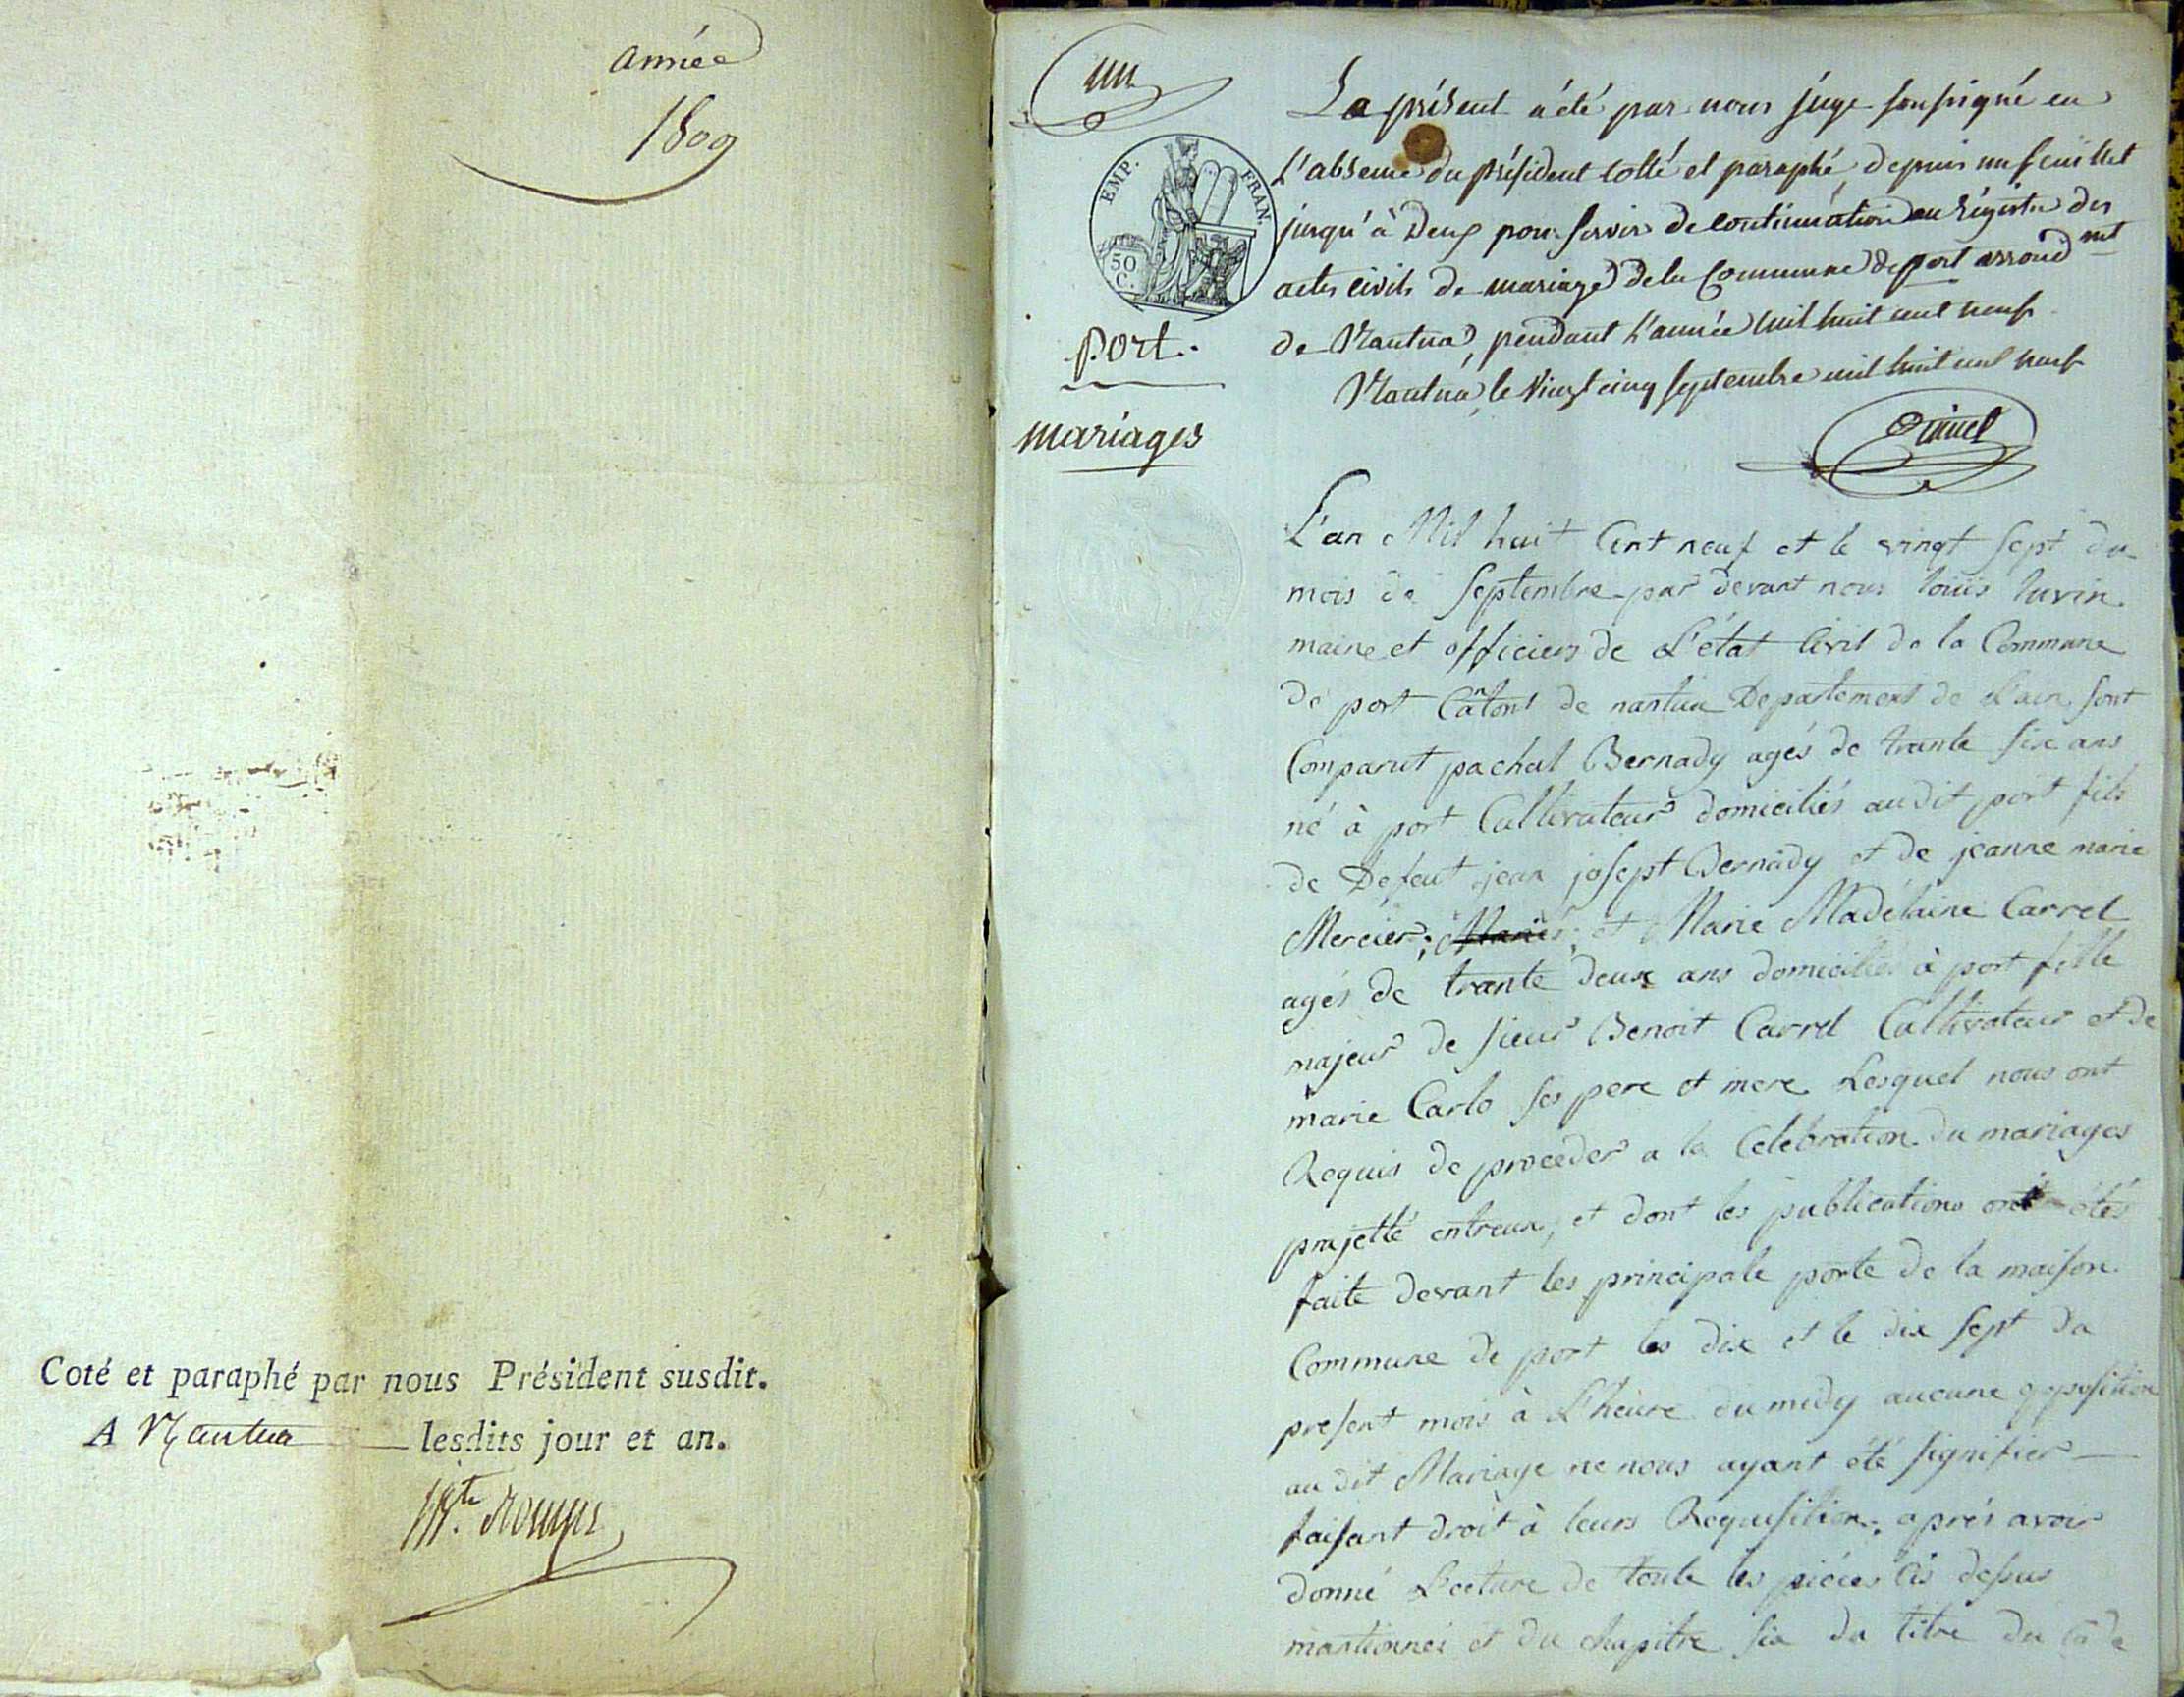 année
1809
Coté et paraphé par nous Président susdit.
A Nantua lesdits jour et an.
un
EMP. FRAN.
50 C.
port.
mariages
Le présent a été par nous juge soussigné en
l'absence du président cotté et paraphé depuis un feuillet
jusqu'à Deux pour servir de continuation au régistre des
actes civils de mariage de la Commune de port arrond.mt
de Nantua, pendant l'année mil huit cent neuf
Nantua, le vingt cinq septembre mil huit cent neuf
L'an Mil huit Cent neuf et le vingt sept du
mois de Septembre par devant nous louis luvin
maire et officiers de L'état Civil de la Commune
de port Cantont de nantua Departement de L'ain sont
Comparut pachal Bernady agés de trante six ans
né à port Cultivateurs domiciliés audit port fils
de Defeut jean josept Bernady et de jeanne marie
Mercier; Mariés; et Marie Madélaine Carrel
agés de trante deux ans domicilié à port fille
majeur de sieur Benoit Carrel Cultivateur et de
marie Carlo ses pere et mere Lesquel nous ont
Requis de proceder a la Celebration du mariages
projetté entreux, et dont les publications ont étés
faite devant les principale porte de la maison
Commune de port les dix et le dix sept du
present mois à L'heure du midy aucune opposition
au dit Mariage ne nous ayant été signifier
faisant droit à leurs Requisition, aprés avoir
donné Lecture de toute les piéces Cis dessus
mantionnés et du chapitre six du titre du Code